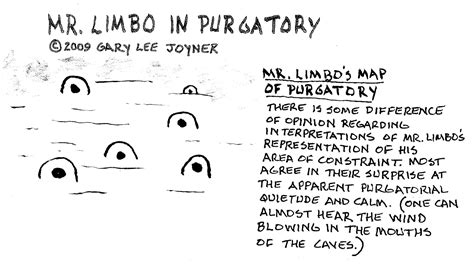 MR. LIMBO IN PURGATORY
©2009 GARY LEE JOYNER
MR. LIMBO'S MAP
OF PURGATORY
THERE IS SOME DIFFERENCE
OF OPINION REGARDING
INTERPRETATIONS OF MR. LIMBO'S
REPRESENTATION OF HIS
AREA OF CONSTRAINT. MOST
AGREE IN THEIR SURPRISE AT
THE APPARENT PURGATORIAL
QUIETUDE AND CALM. (ONE CAN
ALMOST HEAR THE WIND
BLOWING IN THE MOUTHS
OF THE CAVES.)